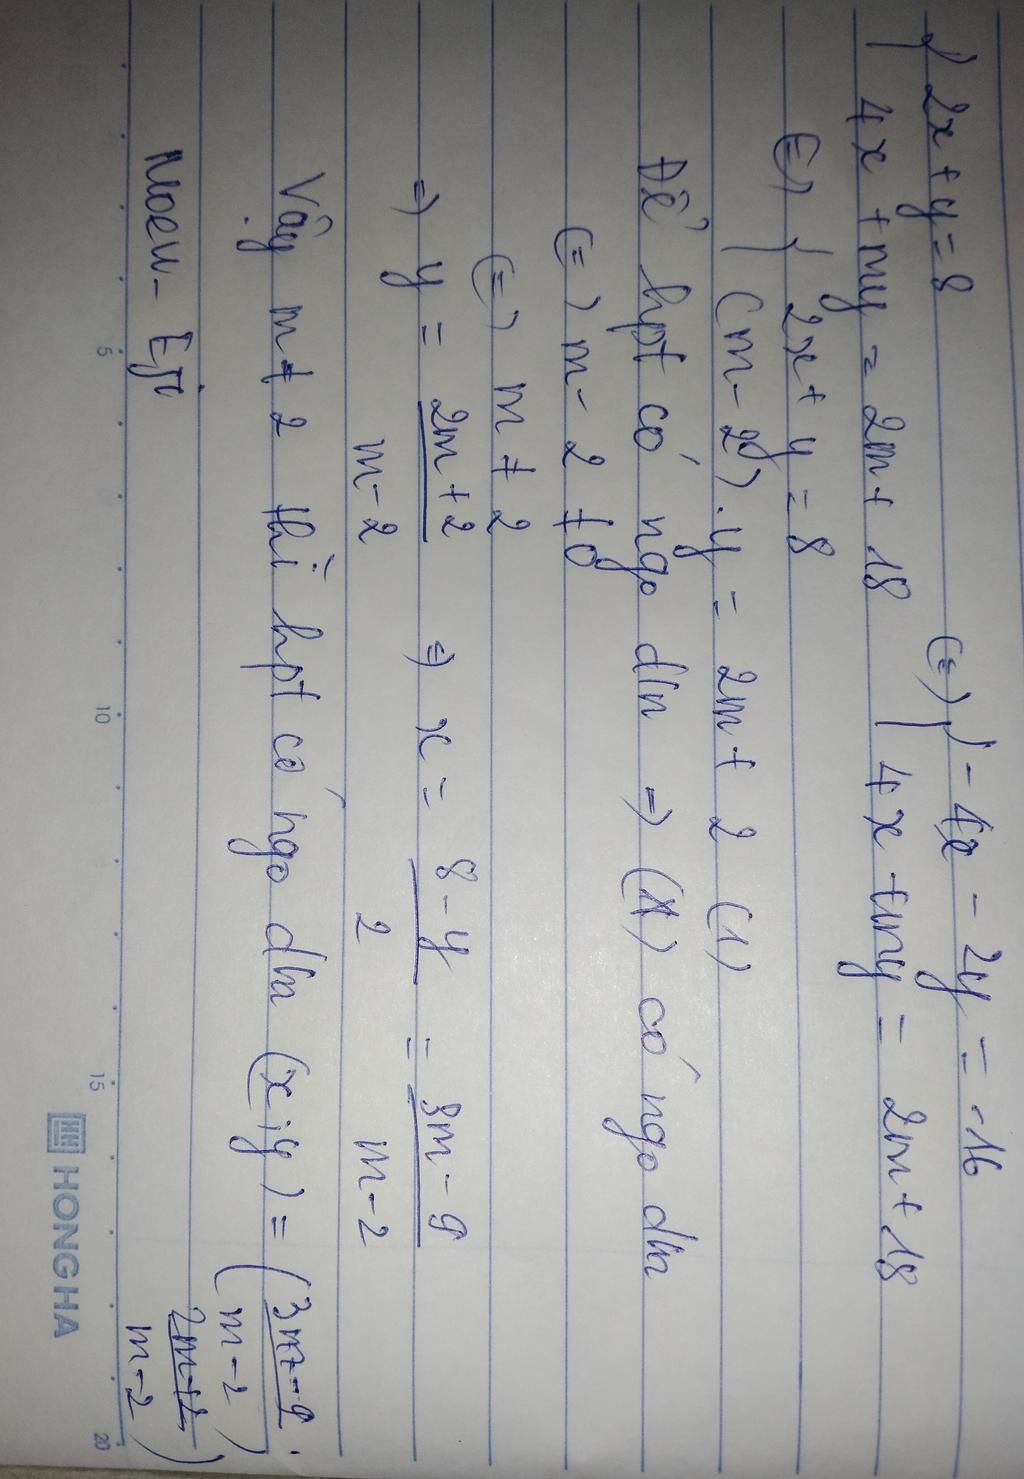 { 2x + y = 8 (=) { - 4x - 2y = -16
{ 4x + my = 2m + 18 { 4x + my = 2m + 18
(=) { 2x + y = 8
{ (m - 2) . y = 2m + 2 (1)
Để hpt có ngo dln => (1) có ngo dln
(=) m - 2 ≠ 0
(=) m ≠ 2
=> y = 2m + 2 / m - 2 => x = 8 - y / 2 = 3m - 9 / m - 2
Vậy m ≠ 2 thì hpt có ngo dln (x; y) = ( 3m - 9 / m - 2 ; 2m + 2 / m - 2 )
5 10 15 20
HONG HA